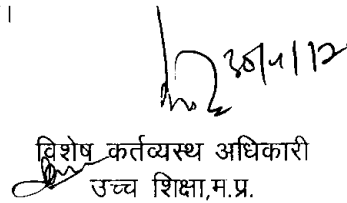 ।
30/4/12
विशेष कर्तव्यस्थ अधिकारी
उच्च शिक्षा,म.प्र.